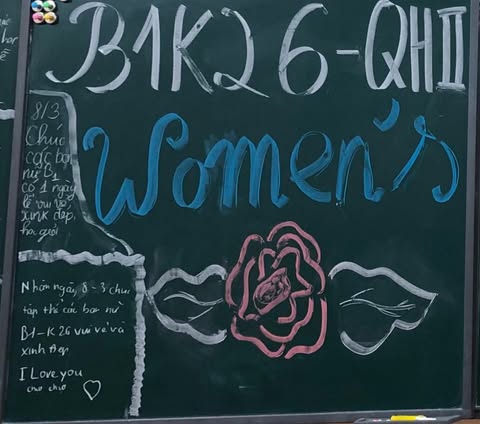 B1K26-QHII
Women's
8/3
Chúc
các bạn
nữ B1
có 1 ngày
lễ vui vẻ
xinh đẹp
Nhân ngày 8-3 chúc
tập thể các bạn nữ
B1-K26 vui vẻ và
xinh đẹp
I Love you